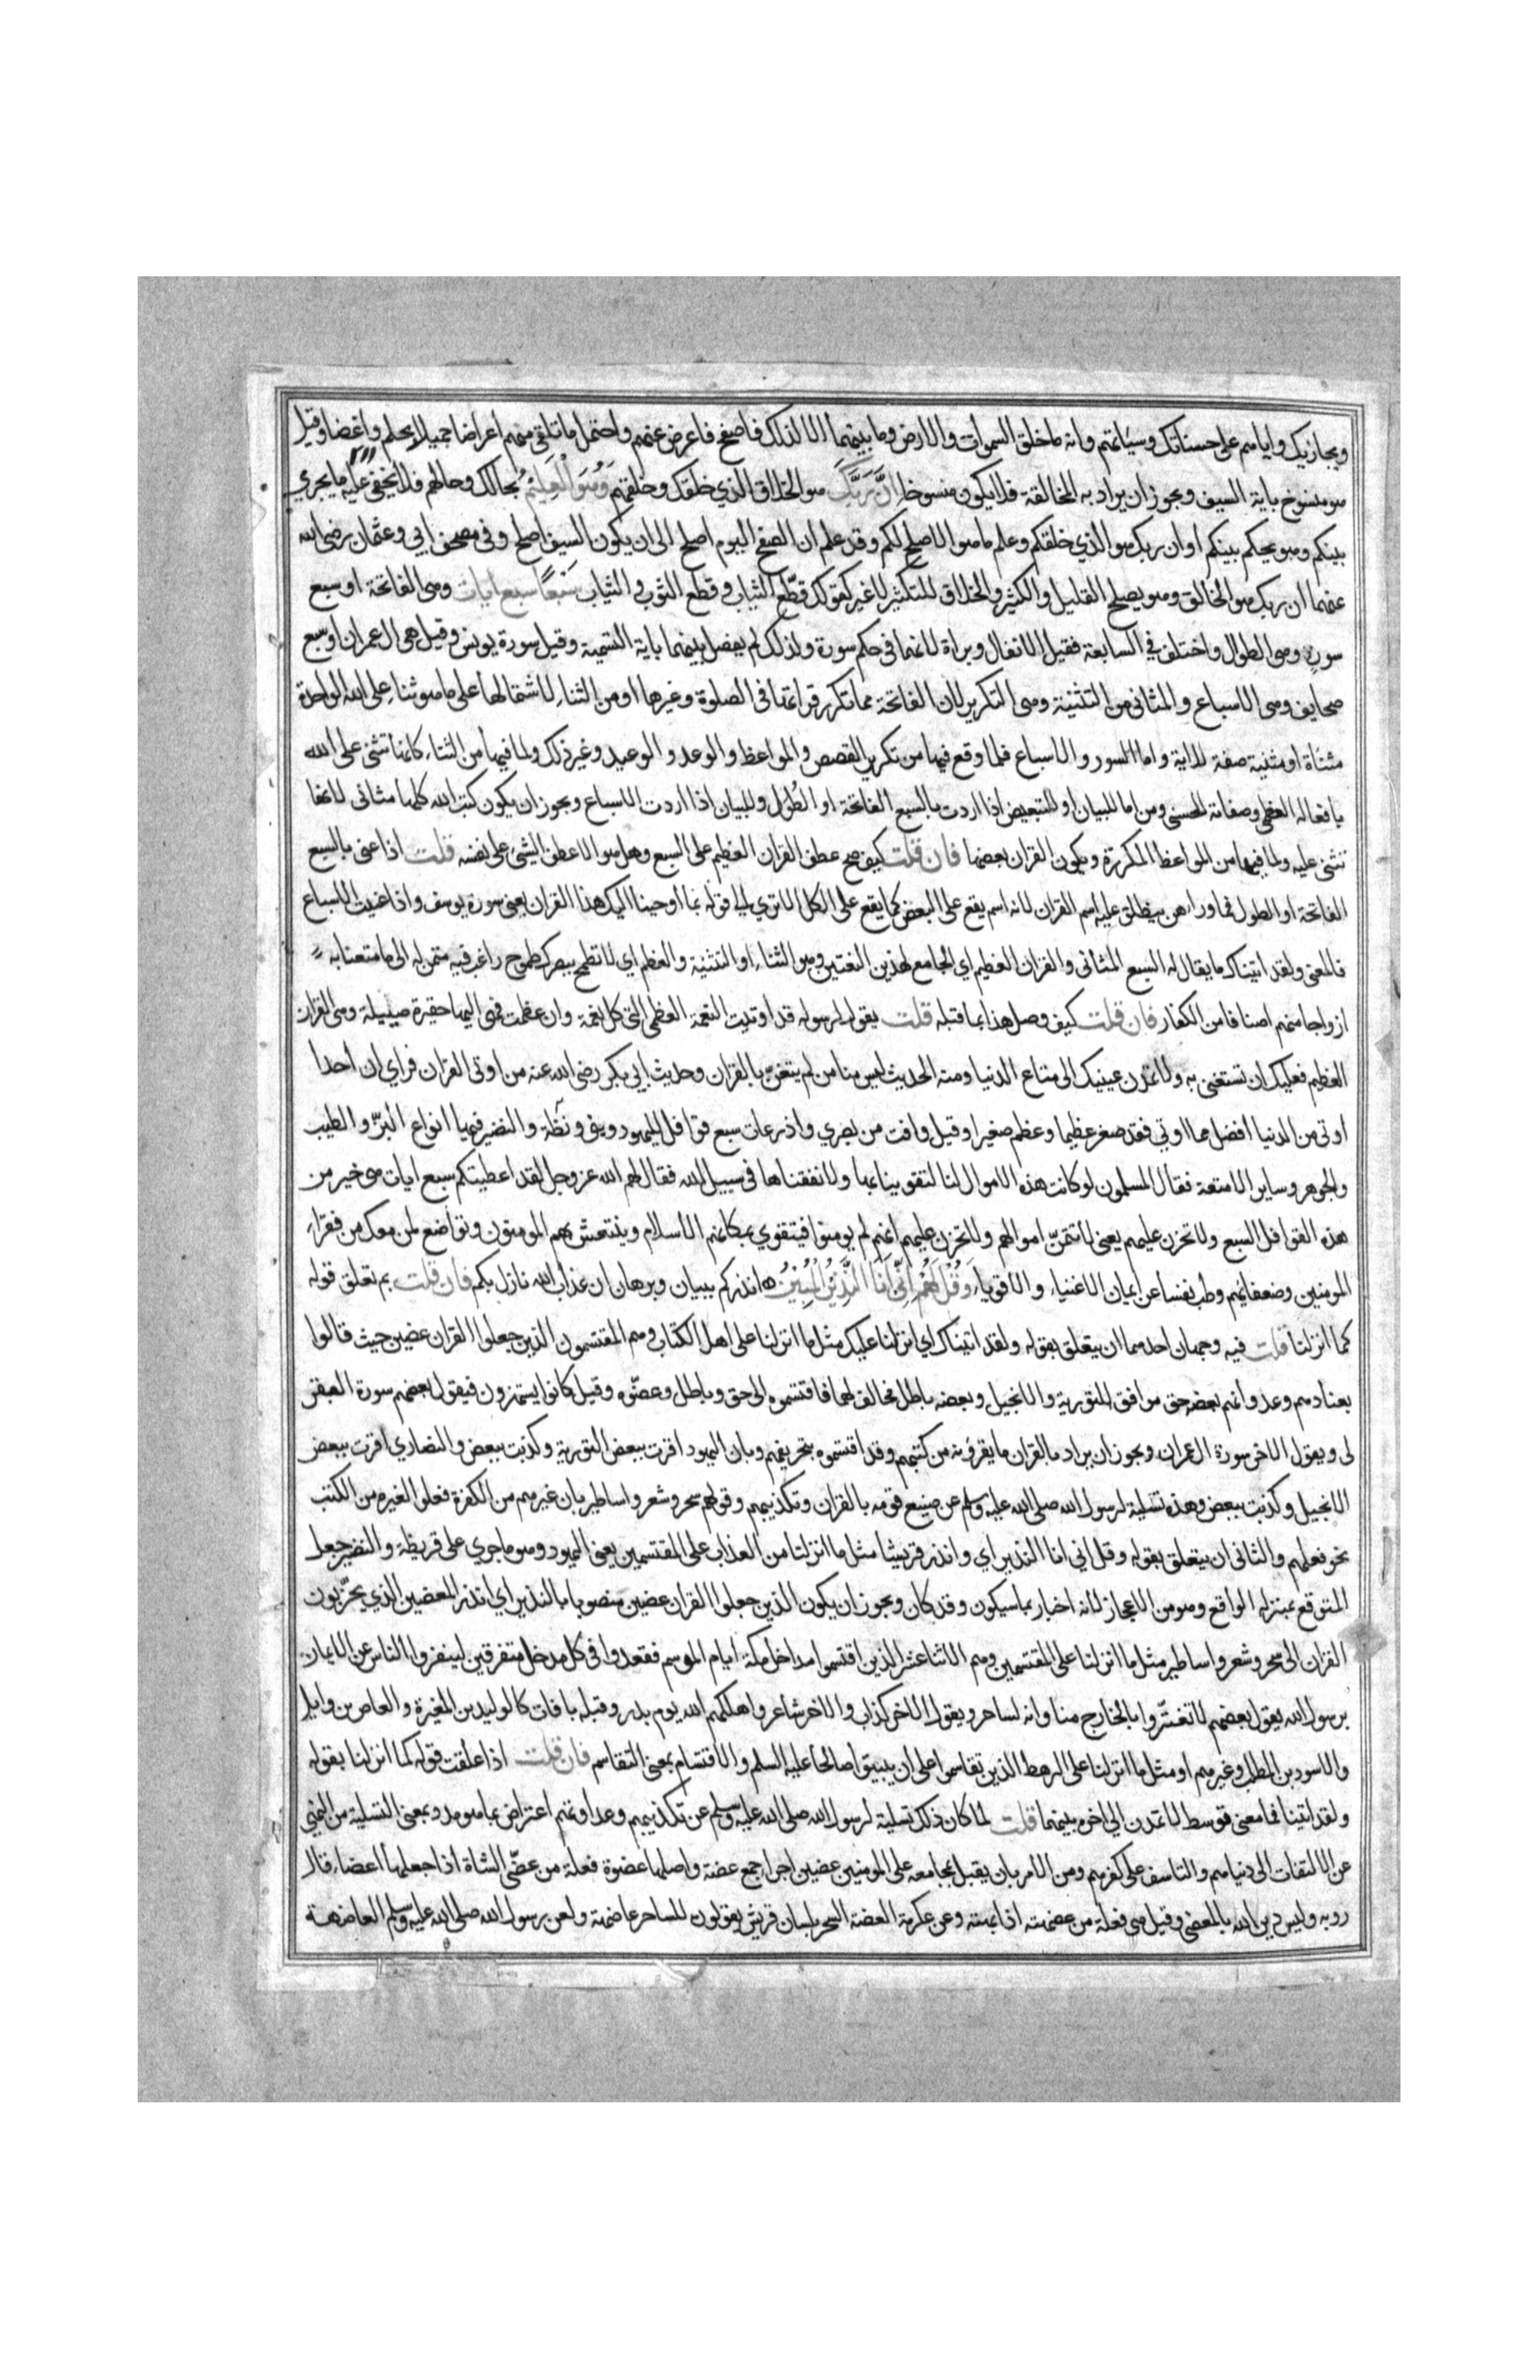 ويجازيك واياهم على حسناتك وسيّاتهم وانه ما خلق السموات والارض وما بينهما الا لذلك فاصفح فاعرض عنهم واحتمل ما تلقى منهم اعراضا جميلا بحلم واغضا وقيل
هو منسوخ باية السيف ويجوز ان يراد به المخالقة فلا يكون منسوخا اِنَّ رَبَّكَ هو الخلاق الذي خلقك وخلقهم وَهُوَ الْعَلِيْمُ بحالك وحالهم فلا يخفى عليه ما يجري
بينكم وهو يحكم بينكم او ان ربك هو الذي خلقكم وعلم ما هو الاصلح لكم وقد علم ان الصفح اليوم اصلح الى ان يكون السيف اصلح وفى مصحف ابي وعثمان رضى الله
عنهما ان ربك هو الخالق وهو يصلح القليل والكثير والخلاق للتكثير لا غير كقولك قطّع الثياب وقطع الثوب والثياب سَبْعًا سبع ايات وهى الفاتحة او سبع
سور وهى الطوال واختلف في السابعة فقيل الانفال وبراة لانهما فى حكم سورة ولذلك لم يفصل بينهما باية التسمية وقيل سورة يونس وقيل هى ال عمران او سبع
صحايف وهى الاسباع والمثانى من التثنية وهى التكرير لان الفاتحة مما تكرر قراتها فى الصلوة وغيرها او من الثناء لاشتمالها على ما هو ثناء على الله الواحدة
مثناة او مثنية صفة للاية واما السور والاسباع فلما وقع فيها من تكرير القصص والمواعظ والوعد والوعيد وغير ذلك ولما فيها من الثناء كانها تثنى على الله
بافعاله العظمى وصفاته الحسنى ومن اما للبيان او للتبعيض اذا اردت بالسبع الفاتحة او الطُوَل وللبيان اذا اردت الاسباع ويجوز ان يكون كتب الله كلها مثانى لانها
تثنى عليه ولما فيها من المواعظ المكررة ويكون القران بعضها فان قلت كيف صح عطف القران العظيم على السبع وهل هو الا عطف الشئ على نفسه قلت اذا عنى بالسبع
الفاتحة او الطول فما وراهن ينطلق عليه اسم القران لانه اسم يقع على البعض كما يقع على الكل الا ترى الى قوله بما اوحينا اليك هذا القران يعنى سورة يوسف واذا عنيت الاسباع
فالمعنى ولقد اتيناك ما يقال له السبع المثانى والقران العظيم اي الجامع لهذين النعتين وهو الثناء او التثنية والعظم اي لا تطمح ببصرك طموح راغب فيه متمن له الى ما متعنا به
ازواجا منهم اصنافا من الكفار فان قلت كيف وصل هذا بما قبله قلت يقول لرسوله قد اوتيت النعمة العظمى التى كل نعمة وان عظمت فهى اليها حقيرة ضئيلة وهى القران
العظيم فعليك ان تستغنى به ولا تمدن عينيك الى متاع الدنيا ومنه الحديث ليس منا من لم يتغن بالقران وحديث ابي بكر رضى الله عنه من اوتى القران فراى ان احدا
اوتى من الدنيا افضل مما اوتي فقد صغر عظيما وعظم صغيرا وقيل وافت من بصرى واذرعات سبع قوافل لليهود وبنى قريظة والنضير فيها انواع البزّ والطيب
والجوهر وساير الامتعة فقال المسلمون لو كانت هذه الاموال لنا لتقوينا بها ولانفقناها فى سبيل الله فقال لهم الله عز وجل لقد اعطيتكم سبع ايات هى خير من
هذه القوافل السبع ولا تحزن عليهم يعنى لا تتمنّ اموالهم ولا تحزن عليهم انهم لم يومنوا فيتقوي بمكانهم الاسلام وينتعش بهم المومنون وتواضع لمن معك من فقراء
المومنين وضعفائهم وطب نفسا عن ايمان الاغنياء والاقوياء وَقُلْ لَهُمْ اِنِّى اَنَا النَّذِيْرُ الْمُبِيْنُ انذركم ببيان وبرهان ان عذاب الله نازل بكم فان قلت بم تعلق قوله
كما انزلنا قلت فيه وجهان احدهما ان يتعلق بقوله ولقد اتيناك اي انزلنا عليك مثل ما انزلنا على اهل الكتاب وهم المقتسمون الذين جعلوا القران عضين حيث قالوا
بعنادهم وعدوانهم بعضه حق موافق للتورية والانجيل وبعضه باطل مخالف لهما فاقتسموه الى حق وباطل وعضّوه وقيل كانوا يستهزون فيقول بعضهم سورة البقر
لى ويقول الاخر سورة ال عمران ويجوز ان يراد بالقران ما يقرؤنه من كتبهم وقد اقتسموه بتحريفهم وبان اليهود اقرت ببعض التورية وكذبت ببعض والنصاري اقرت ببعض
الانجيل وكذبت ببعض وهذه تسلية لرسول الله صلى الله عليه وسلم عن صنيع قومه بالقران وتكذيبهم وقولهم سحر وشعر واساطير بان غيرهم من الكفرة فعلوا لغيره من الكتب
نحو فعلهم والثانى ان يتعلق بقوله وقل انى انا النذير اي وانذر قريشا مثل ما انزلنا من العذاب على المقتسمين يعنى اليهود وهو ما جرى على قريظة والنضير جعل
المتوقع بمنزلة الواقع وهو من الاعجاز لانه اخبار بما سيكون وقد كان ويجوز ان يكون الذين جعلوا القران عضين منصوبا بالنذير اي انذر المعضين الذي يجزّبون
القران الى سحر وشعر واساطير مثل ما انزلنا على المقتسمين وهم الاثنا عشر الذين اقتسموا مداخل مكة ايام الموسم فقعدوا فى كل مدخل متفرقين لينفروا الناس عن الايمان
برسول الله يقول بعضهم لا تغترّوا بالخارج منا وانه لساحر ويقول الاخر كذاب والاخر شاعر واهلكهم الله يوم بدر وقبله بافات كالوليد بن المغيرة والعاص بن وايل
والاسود بن المطلب وغيرهم او مثل ما انزلنا على الرهط الذين تقاسموا على ان يبيتوا صالحا عليه السلم والاقتسام بمعنى التقاسم فان قلت اذا علقت قوله كما انزلنا بقوله
ولقد اتينا فما معنى توسط لا تمدن الى اخره بينهما قلت لما كان ذلك تسلية لرسول الله صلى الله عليه وسلم عن تكذيبهم وعداوتهم اعترض بما هو مدد بمعنى التسلية من النهي
عن الالتفات الى دنياهم والتاسف على كفرهم ومن الامر بان يقبل بمجامعه على المومنين عضين اجزاء جمع عضة واصلها عضوة فعلة من عضّى الشاة اذا جعلها اعضاء قال
روبه وليس دين الله بالمعضى وقيل هى فعلة من عضهته اذا بهته وعن عكرمة العضة السحر بلسان قريش يقولون للساحر عاضهة ولعن رسول الله صلى الله عليه وسلم العاضهة